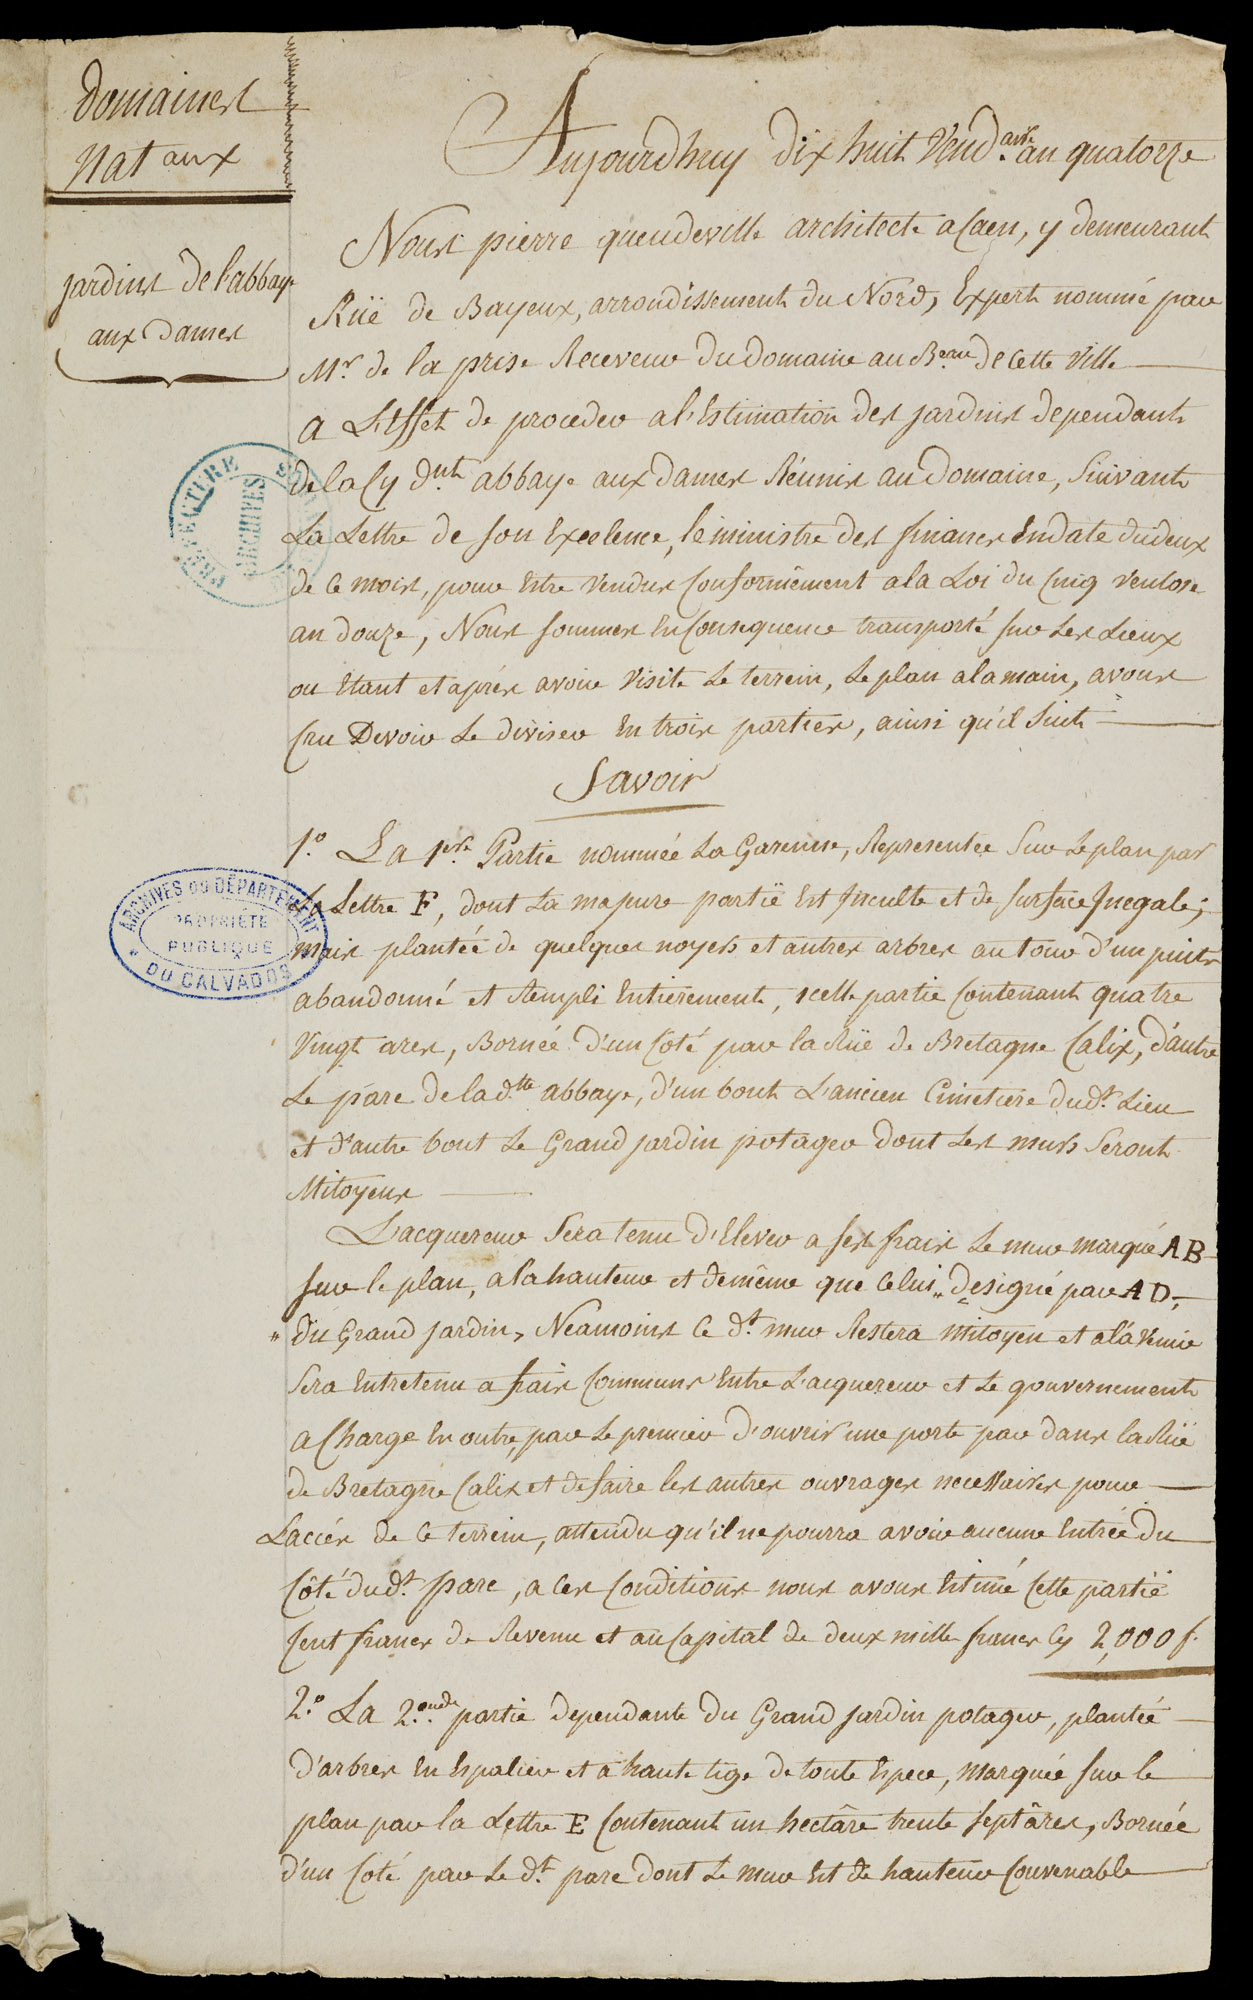 domaines
nataux
jardins de l'abbaye
aux dames
Aujourdhuy dix huit Vend.aire an quatorze
Nous pierre queudeville architecte a Caen, y demeurant
Rüe de Bayeux, arrondissement du Nord, Expert nommé par
Mr. de la prise Receveur du domaine au B.eau de cette Ville
a L'Effet de proceder a l'Estimation des jardins dependants
de la Cy d.nt abbaye aux dames Réunis au domaine, Suivant
La Lettre de son Excelence, le ministre des finances En date du deux
de ce mois, pour Estre Vendus Conformêment a la Loi du Cinq Ventose
an douze, Nous sommes En Consequence transporté sur Les Lieux
ou Etant et après avoir Visité Le terrein, Le plan a la main, avons
Cru Devoir Le diviser En trois parties, ainsi qu'il Suit
Savoir
1.° La 1ere. Partie nommée La Garenne, Representée Sur Le plan par
La Lettre F, dont La majeure partië Est Inculte et de Surface Inegale;
mais plantée de quelques noyers et autres arbres au tour d'un puits
abandonné et Rempli Entierement, icelle partie Contenant quatre
Vingt ares, Bornée d'un Côté par la Rüe de Bretagne Calix, d'autre
Le parc de la d.tte abbaye, d'un bout L'ancien Cimetiere du d.t Lieu
et d'autre bout Le Grand jardin potager dont Les murs Seront
Mitoyens
L'acquereur Sera tenu d'Elever a ses frais Le mur marqué AB
sur le plan, a la hauteur et de même que Celui „ designé par AD,
„ du Grand jardin, Néamoins Ce d.t mur Restera Mitoyen et a l'avenir
Sera Entretenu a frais Communs Entre L'acquereur et Le gouvernement
a Charge En outre, par Le premier d'ouvrir une porte par dans la Rüe
de Bretagne Calix et de faire les autres ouvrages necessaires pour
L'accès de Ce terrein, attendu qu'il ne pourra avoir aucune Entrée du
Côté du d.t parc, a Ces Conditions nous avons Estimé Cette partië
Cent francs de Revenu et au Capital de deux mille francs Cy 2,000 f.
2.° La 2.onde partie dependante du Grand jardin potager, plantée
d'arbres En Espalier et a haute tige de toute Espece, Marquée sur le
plan par la Lettre E Contenant un hectâre trente sept âres, Bornée
d'un Coté par Le d.t parc dont Le mur Est de hauteur Convenable
PREFECTURE
ARCHIVES
ARCHIVES DU DÉPARTEMENT
PROPRIÉTÉ
PUBLIQUE
* DU CALVADOS *